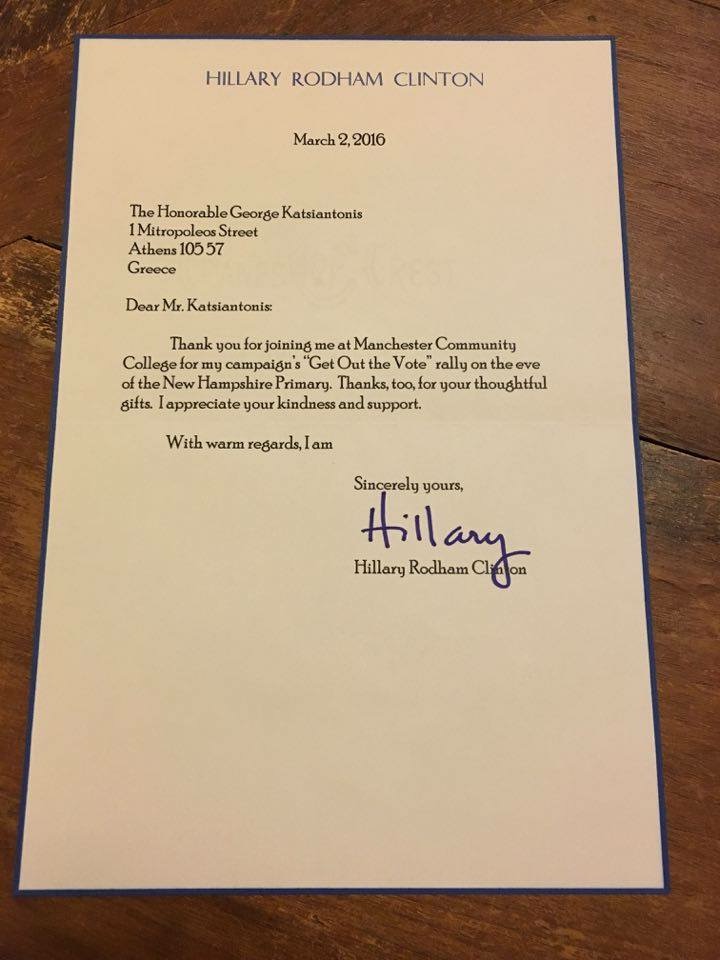 HILLARY RODHAM CLINTON
March 2, 2016
The Honorable George Katsiantonis
1 Mitropoleos Street
Athens 105 57
Greece
Dear Mr. Katsiantonis:
Thank you for joining me at Manchester Community
College for my campaign's "Get Out the Vote" rally on the eve
of the New Hampshire Primary. Thanks, too, for your thoughtful
gifts. I appreciate your kindness and support.
With warm regards, I am
Sincerely yours,
Hillary
Hillary Rodham Clinton